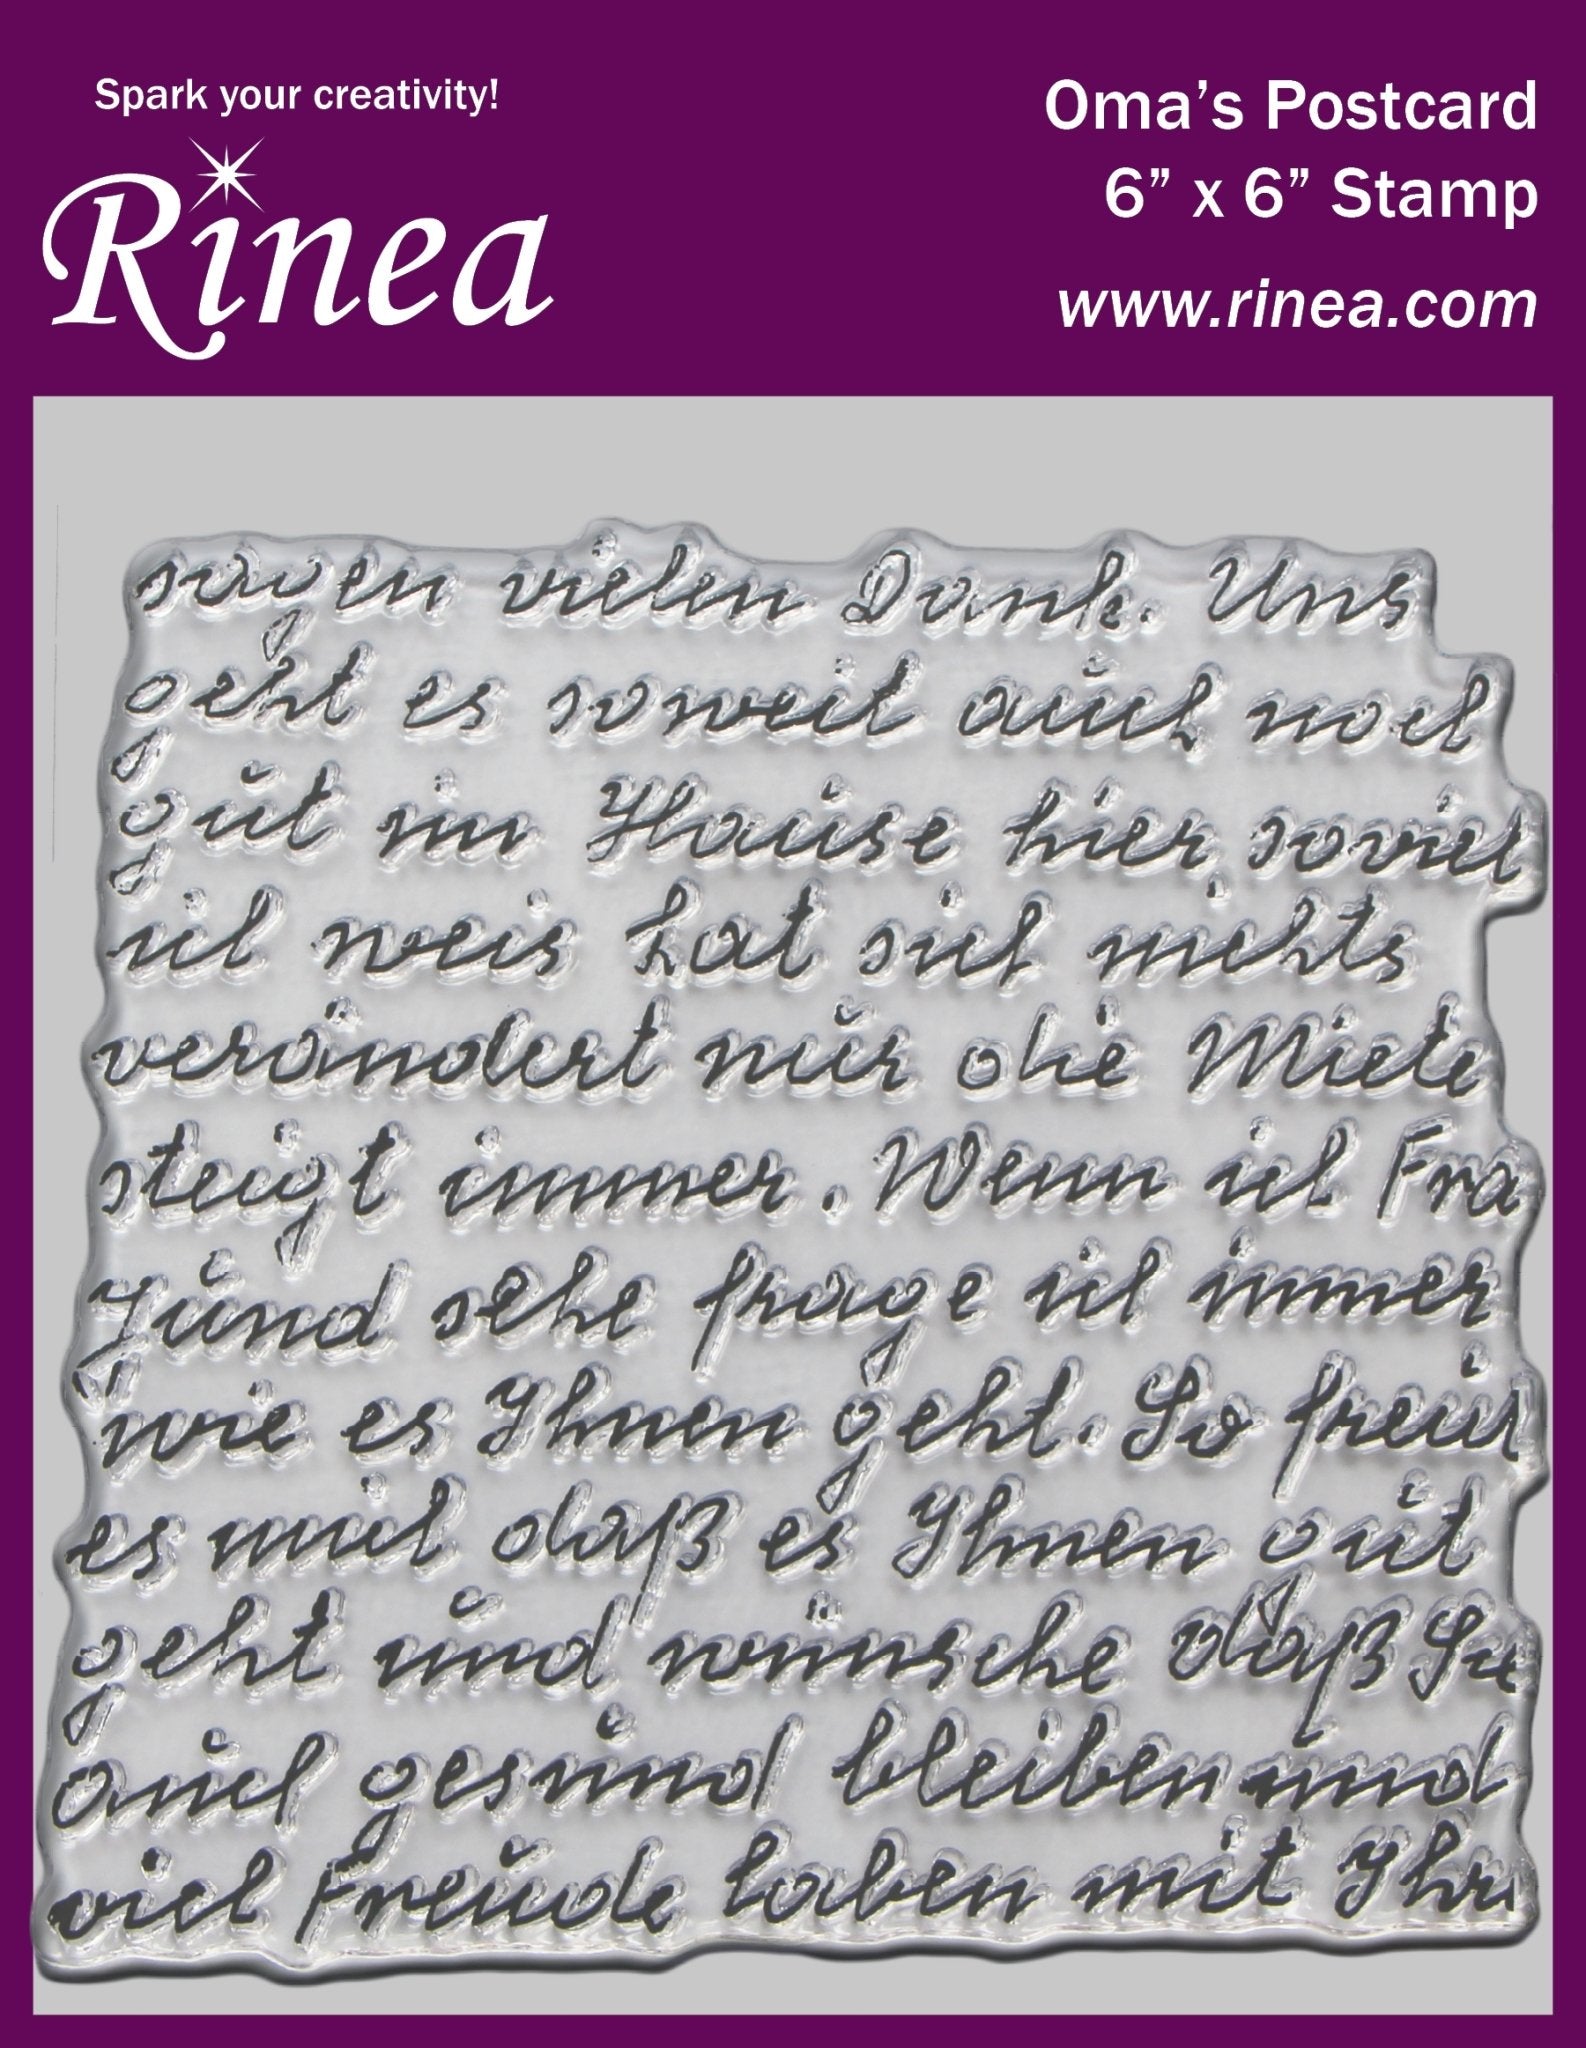 Spark your creativity!
Rinea
Oma's Postcard
6" x 6" Stamp
www.rinea.com
sagen vielen Dank. Uns
geht es soweit auch noch
gut im Hause hier, soviel
ich weis hat sich nichts
verändert nur die Miete
steigt immer. Wenn ich Fra
Jund sehe frage ich immer
wie es Ihnen geht. So freut
es mich daß es Ihnen gut
geht und wünsche daß Sie
auch gesund bleiben und
viel Freude haben mit Ihr